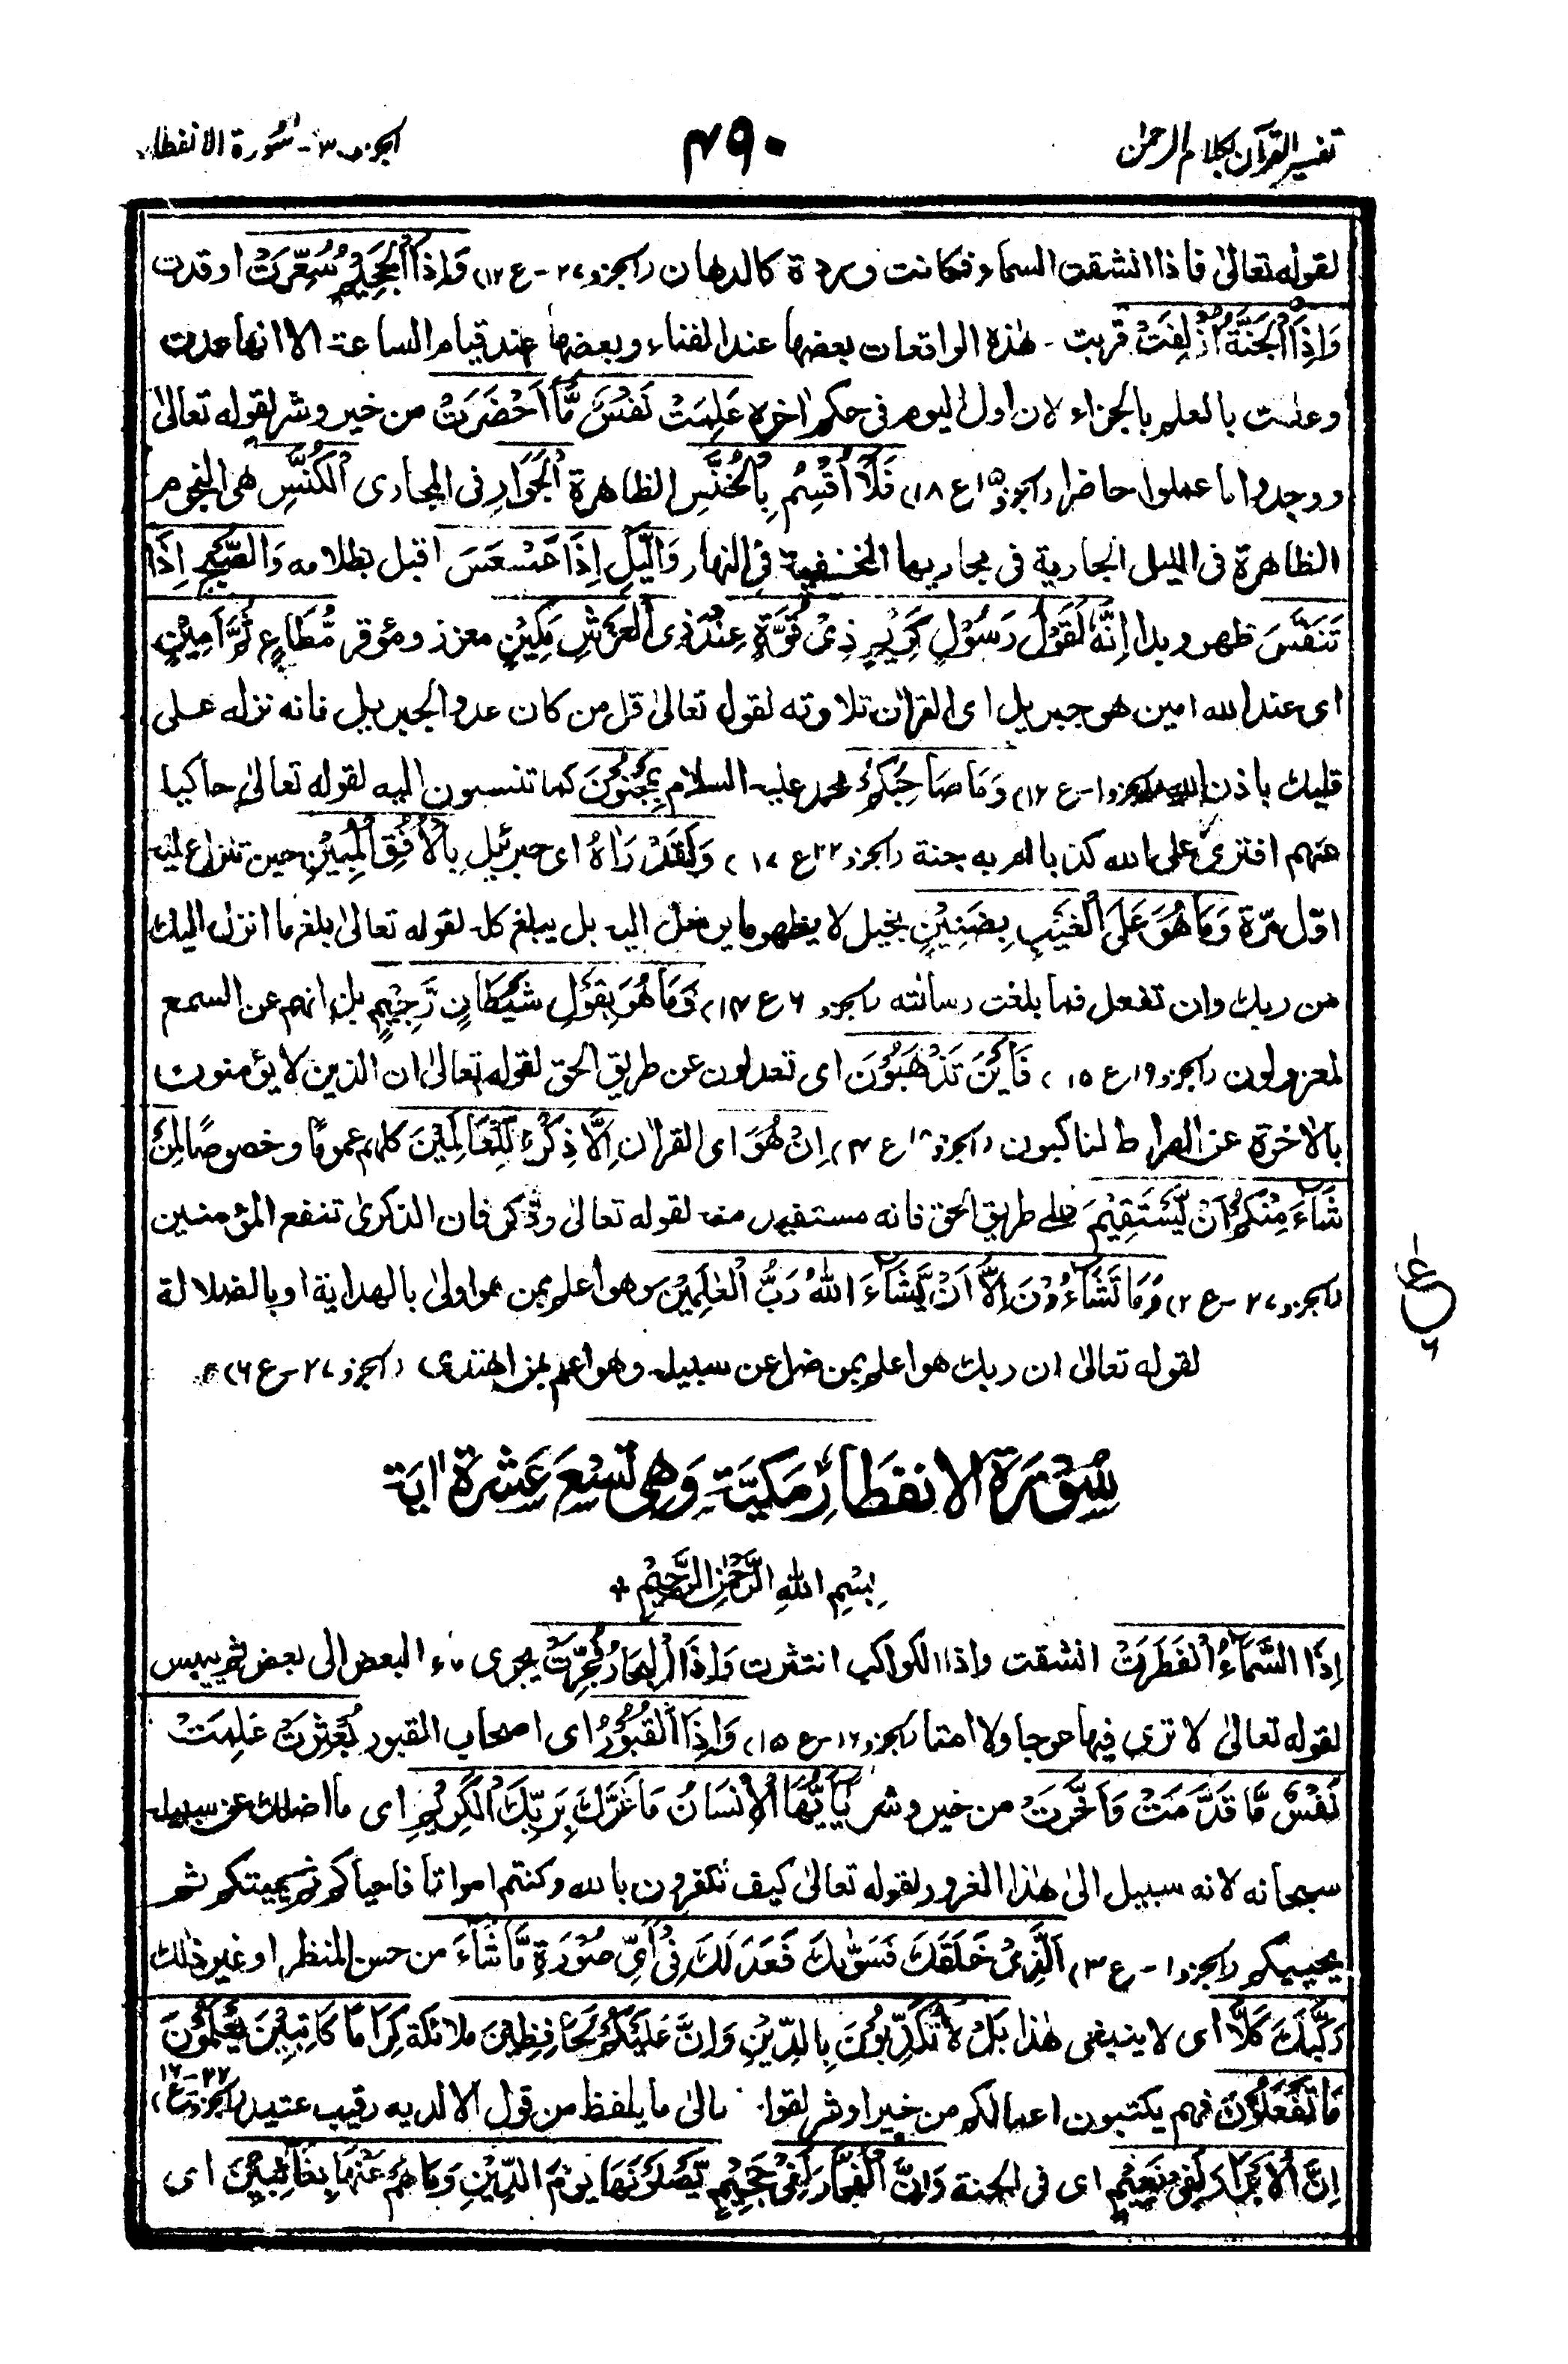 تفسير القرآن بكلام الرحمٰن
٤٩٠
الجزء ٣٠ - سورة الانفطار
لقوله تعالىٰ فاذا انشقت السماء فكانت وردة كالدهان (الجزو ٢٧ - ع ١٢) وَاِذَا الْجَحِيْمُ سُعِّرَتْ اوقدت
وَاِذَا الْجَنَّةُ اُزْلِفَتْ قربت - هٰذه الواقعات بعضها عند الفناء وبعضها عند قيام الساعة الا انها عدت
وعلمت بالعلم بالجزاء لان اول اليوم فى حكم اٰخره عَلِمَتْ نَفْسٌ مَّا اَحْضَرَتْ من خير وشر لقوله تعالىٰ
ووجدوا ما عملوا حاضرا (الجزو ١٥ ع ١٨) فَلَا اُقْسِمُ بِالْخُنَّسِ الظاهرة الْجَوَارِ فى المجارى الْكُنَّسِ هى النجوم
الظاهرة فى الليل الجارية فى مجاريها المختفية فى النهار وَالَّيْلِ اِذَا عَسْعَسَ اقبل بظلامه وَالصُّبْحِ اِذَا
تَنَفَّسَ ظهر وبدا اِنَّهٗ لَقَوْلُ رَسُوْلٍ كَرِيْمٍ ذِىْ قُوَّةٍ عِنْدَ ذِى الْعَرْشِ مَكِيْنٍ معزز ومؤقر مُّطَاعٍ ثَمَّ اَمِيْنٍ
اى عند الله امين هو جبريل اى القراٰن تلاوته لقوله تعالىٰ قل من كان عدوا لجبريل فانه نزله على
قلبك باذن الله (الجزو ١ - ع ١٢) وَمَا صَاحِبُكُمْ محمد عليه السلام بِمَجْنُوْنٍ كما تنسبون اليه لقوله تعالىٰ حاكيا
عنهم افترىٰ على الله كذبا ام به جنة (الجزو ٢٢ ع ١٧) وَلَقَدْ رَاٰهُ اى جبرئيل بِالْاُفُقِ الْمُبِيْنِ حين تنزل عليه
اوّل مرّة وَمَا هُوَ عَلَى الْغَيْبِ بِضَنِيْنٍ بخيل لا يظهر ما ينزل اليه بل يبلغ كله لقوله تعالىٰ بلغ ما انزل اليك
من ربك وان تفعل فما بلغت رسالته (الجزو ٦ ع ١٤) وَمَا هُوَ بِقَوْلِ شَيْطَانٍ رَّجِيْمٍ بل انهم عن السمع
لمعزولون (الجزو ١٩ ع ١٥) فَاَيْنَ تَذْهَبُوْنَ اى تعدلون عن طريق الحق لقوله تعالىٰ ان الذين لا يؤمنون
بالاٰخرة عن الصراط لناكبون (الجزو ١٨ ع ٤) اِنْ هُوَ اى القراٰن اِلَّا ذِكْرٌ لِّلْعَالَمِيْنَ كلهم عموما وخصوصًا لِمَنْ
شَاءَ مِنْكُمْ اَنْ يَّسْتَقِيْمَ على طريق الحق فانه مستفيد منه لقوله تعالىٰ وذكر فان الذكرىٰ تنفع المؤمنين
(الجزو ٢٧ - ع ٢) وَمَا تَشَاءُوْنَ اِلَّا اَنْ يَّشَاءَ اللهُ رَبُّ الْعٰلَمِيْنَ وهو اعلم بمن هو اولىٰ بالهداية او بالضلالة
لقوله تعالىٰ ان ربك هو اعلم بمن ضل عن سبيله وهو اعلم بمن اهتدى (الجزو ٢٧ - ع ٦)
ع
٦
سُوْرَةُ الانفطارِ مَكيَّة وَهِى تسْعَ عَشْرَةَ اٰيَة
بِسْمِ اللهِ الرَّحْمٰنِ الرَّحِيْمِ
اِذَا السَّمَاءُ انْفَطَرَتْ انشقت واذا الكواكب انتثرت وَاِذَا الْبِحَارُ فُجِّرَتْ يجرى ماء البعض الى بعض ثم ييبس
لقوله تعالىٰ لا ترى فيها عوجا ولا امتا (الجزو ١٦ - ع ١٥) وَاِذَا الْقُبُوْرُ اى اصحاب القبور بُعْثِرَتْ عَلِمَتْ
نَفْسٌ مَّا قَدَّمَتْ وَاَخَّرَتْ من خير وشر يٰاَيُّهَا الْاِنْسَانُ مَا غَرَّكَ بِرَبِّكَ الْكَرِيْمِ اى ما اضلك عن سبيله
سبحانه لانه سبيل الىٰ هٰذا الغرور لقوله تعالىٰ كيف تكفرون بالله وكنتم امواتا فاحياكم ثم يميتكم ثم
يحييكم (الجزو ١ - ع ٣) الَّذِىْ خَلَقَكَ فَسَوّٰىكَ فَعَدَلَكَ فِىْ اَىِّ صُوْرَةٍ مَّا شَاءَ من حسن المنظر او غير ذٰلك
رَكَّبَكَ كَلَّا اى لا ينبغى هٰذا بَلْ تُكَذِّبُوْنَ بِالدِّيْنِ وَاِنَّ عَلَيْكُمْ لَحَافِظِيْنَ ملائكة كِرَامًا كَاتِبِيْنَ يَعْلَمُوْنَ
مَا تَفْعَلُوْنَ فهم يكتبون اعمالكم من خير او شر لقوله تعالىٰ ما يلفظ من قول الا لديه رقيب عتيد (الجزو ٢٦ - ع ١٦)
اِنَّ الْاَبْرَارَ لَفِىْ نَعِيْمٍ اى فى الجنة وَاِنَّ الْفُجَّارَ لَفِىْ جَحِيْمٍ يَّصْلَوْنَهَا يَوْمَ الدِّيْنِ وَمَا هُمْ عَنْهَا بِغَائِبِيْنَ اى